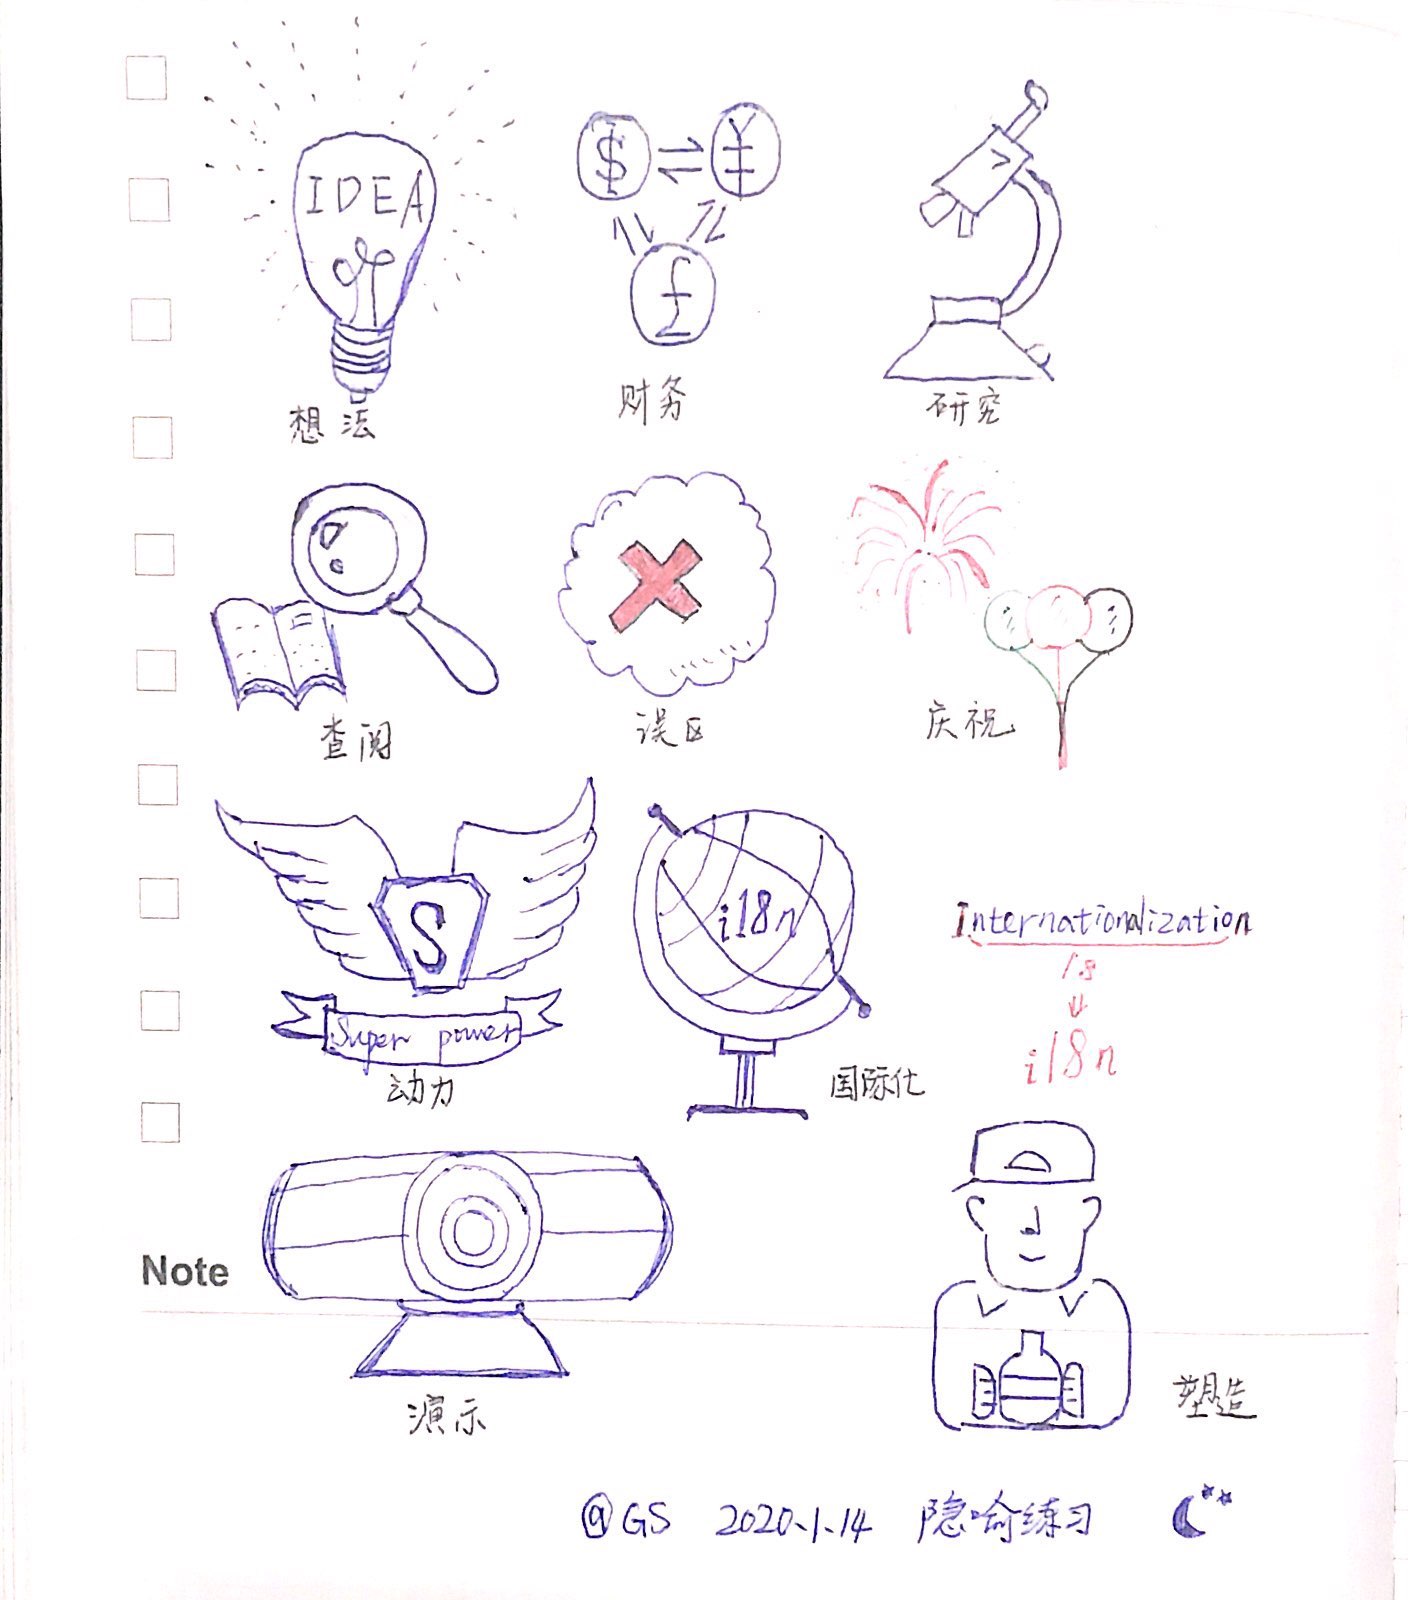 IDEA
想法
$ ¥
£
财务
研究
查阅
误区
庆祝
S
Super power
动力
i18n
国际化
Internationalization
18
i18n
Note
演示
塑造
@GS 2020.1.14 隐喻练习